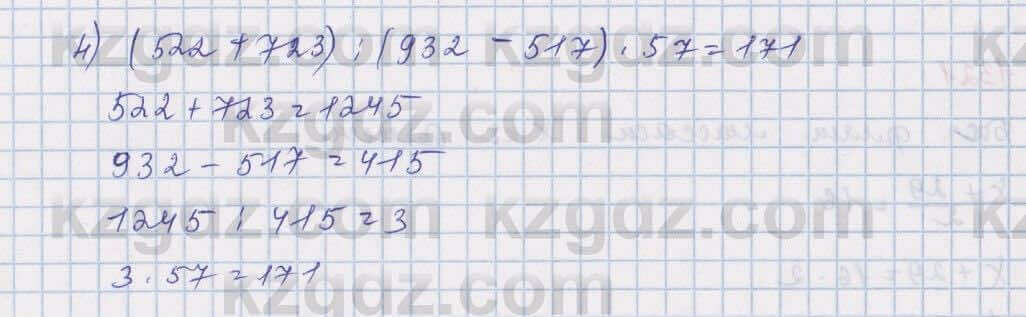 4) (522 + 723) : (932 - 517) · 57 = 171
522 + 723 = 1245
932 - 517 = 415
1245 : 415 = 3
3 · 57 = 171
kzgdz.com kzgdz.com
kzgdz.com
kzgdz.com kzgdz.com
kzgdz.com